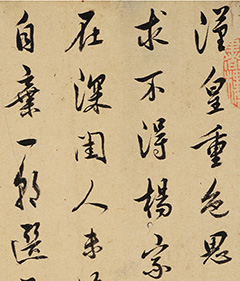 漢皇重色思
求不得楊家
在深閨人未
自棄一朝選